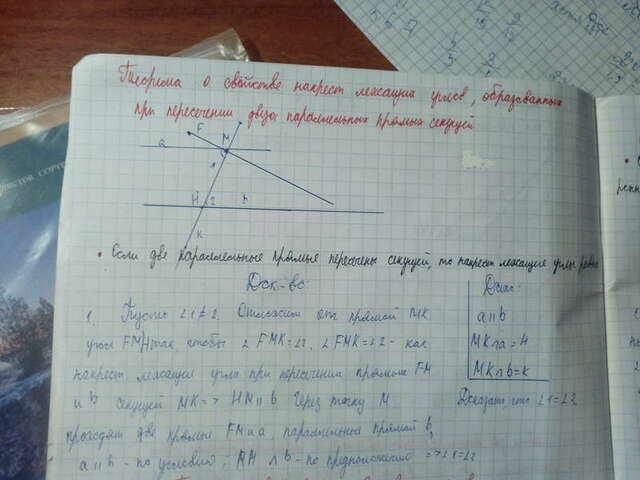 Теорема о свойстве накрест лежащих углов, образованных
при пересечении двух параллельных прямых секущей
F
M
a
1
H 2 b
K
• Если две параллельные прямые пересечены секущей, то накрест лежащие углы равны
Док-во:
1. Пусть ∠1≠2. Отложим от прямой MK
угол FMH так, чтобы ∠FMK=∠2, ∠FMK=∠2 - как
накрест лежащие углы при пересечении прямых FM
и b секущей MK => HM || b Через точку M
проходят две прямые FM и a, параллельные прямой b,
a || b - по условию, b - по предположению => ∠1=∠2
Дано:
a || b
MK∩a=H
MK∩b=K
Доказать что ∠1=∠2